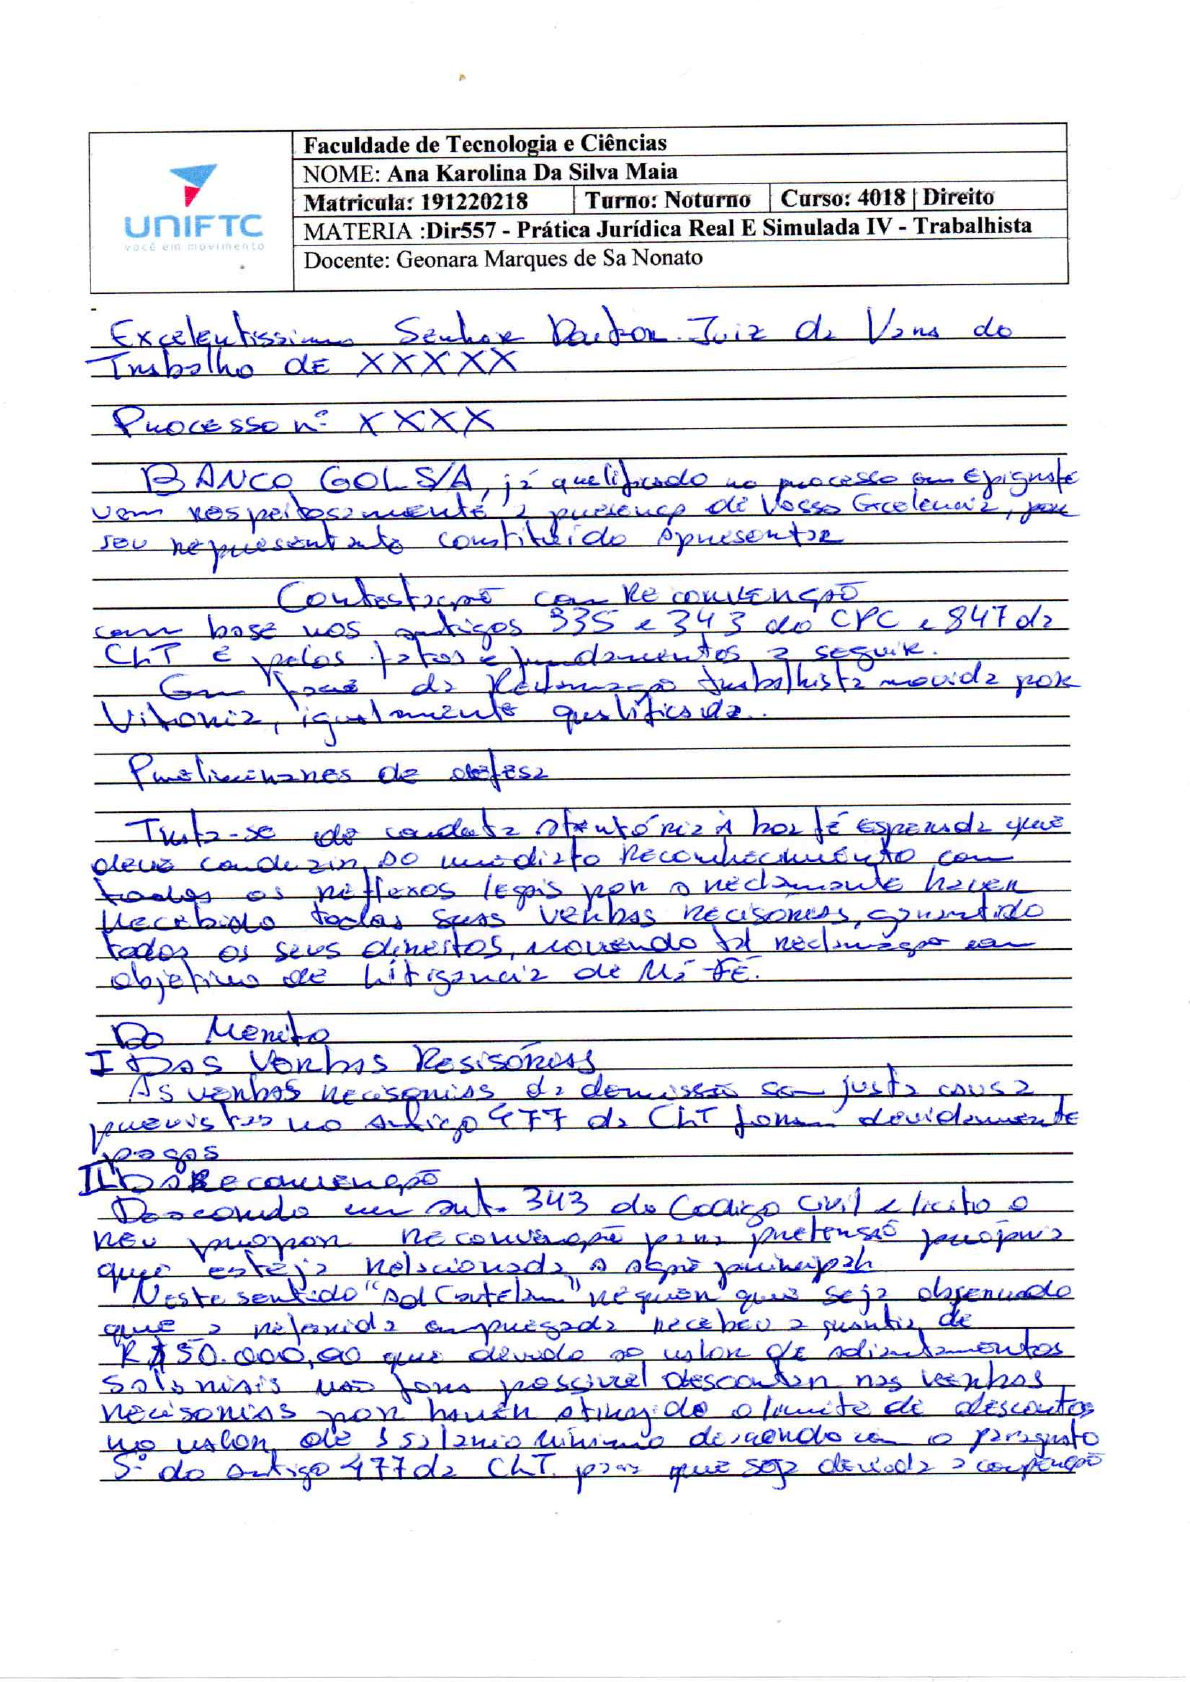 UNIFTC
você em movimento
Faculdade de Tecnologia e Ciências
NOME: Ana Karolina Da Silva Maia
Matricula: 191220218 Turno: Noturno Curso: 4018 | Direito
MATERIA :Dir557 - Prática Jurídica Real E Simulada IV - Trabalhista
Docente: Geonara Marques de Sa Nonato
Excelentissimo Senhor Doutor Juiz da Vara do
Trabalho de XXXXX
Processo nº XXXX
BANCO GOL S/A, já qualificado no processo em epigrafe
vem respeitosamente a presença de Vossa Excelencia, por
seu representante constituído apresentar
Contestação com Reconvenção
com base nos artigos 335 e 343 do CPC e 847 da
CLT e pelos fatos e fundamentos a seguir.
Em face da Reclamação trabalhista movida por
Vitoria, igualmente qualificada.
Preliminares de defesa
Trata-se de conduta atentória à boa fé esperada que
deve conduzir ao imediato reconhecimento com
todos os reflexos legais por o reclamante haver
recebido todas suas verbas recisórias, garantido
todos os seus direitos, movendo tal reclamação com
objetivo de Litigancia de Má Fé.
Do Merito
I Das Verbas Resisórias
As verbas recisorias da demissão sem justa causa
previstas no artigo 477 da CLT foram devidamente
pagas
II Da Reconvenção
Descordo em art. 343 do Codigo Civil e licito o
reu propor reconvenção para pretensão propria
que esteja relacionada a ação principal
Neste sentido "Ad Cautelam" requer que seja observado
que a referida empregada recebeu a quantia de
R$ 50.000,00 que devido ao valor de adiantamentos
salariais não fora possivel descontar nas verbas
recisorias por haver atingido o limite de descontos
no valor de 1 salario minimo de acordo com o paragrafo
5º do artigo 477 da CLT. para que seja devida a